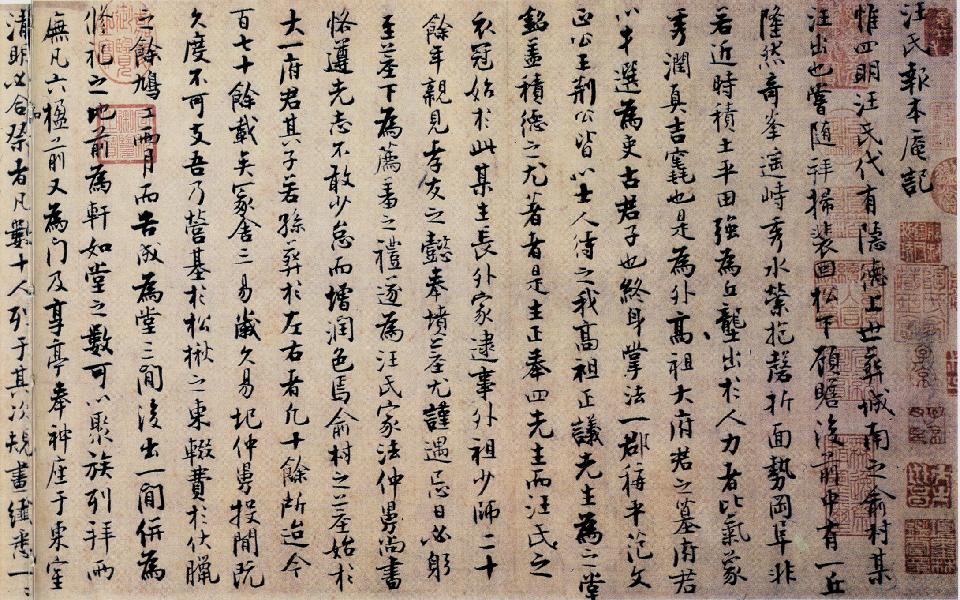 汪氏報本庵記
惟四明汪氏代有隱德上世葬城南之俞村某
汪出也嘗随拜掃裴回松下顧瞻後前中有一丘
隆然奇峯遥峙秀水縈抱磬折面勢岡阜非
若近時積土平田強為丘壟出於人力者比氣象
秀潤真吉宅也是為外高祖大府君之墓府君
以才選為吏古君子也終身掌法一郡稱平范文
正公王荆公皆以士人待之我高祖正議先生為之堂
銘盖積德之尤著者是生正奉四先生而汪氏之
衣冠始於此某生長外家逮事外祖少師二十
餘年親見孝友之懿奉墳墓尤謹遇忌日必躬
至墓下為薦羞之禮遂為汪氏家法仲舅尚書
恪遵先志不敢少怠而增潤色焉俞村之墓始於
大一府君其子若孫葬於左右者凡十餘所迨今
百七十餘載矣冢舍三易歲久易圮仲舅投閒既
久度不可支吾乃營基於松楸之東輟費於伏臘
之餘鳩工兩月而告成為堂三間後出一間併為
脩祀之地前為軒如堂之數可以聚族列拜兩
廡凡六楹前又為門及享亭奉神座于東室
清明必合祭者凡數十人列于其次規畫纖悉一一